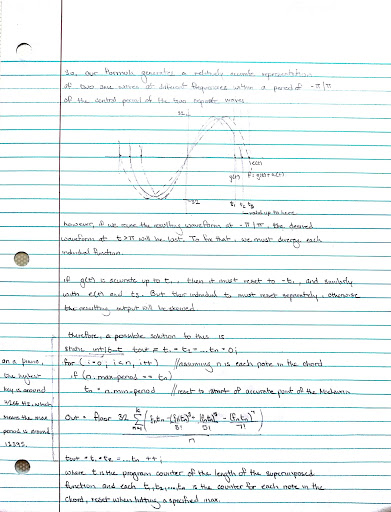 so, our formula generates a relatively accurate representation
of two sine waves of different frequencies within a period of -π/π
of the central period of the two separate waves
g(t) f=g(t)+e(t)
t₁ t₂ t₃
valid up to here
however, if we cause the resulting waveform at -π/π, the desired
waveform at t>π will be lost. To fix that, we must diverge each
individual function.
if g(t) is accurate up to t₁, then it must reset to -t₁, and similarly
with e(t) and t₂. But their individual t₀ must reset separately, otherwise
the resulting output will be skewed.
therefore, a possible solution to this is
static int tout = t₁ = t₂ = ... tn = 0;
for (i=0, i<n, i++) //assuming n is each note in the chord
if (n.maxperiod == tn)
tn = n.minperiod //reset to start of accurate point of the Maclaurin
out = floor 32
tout = t₁ = t₂ = ... tn ++;
where t is the program counter of the length of the superimposed
function and each t₁, t₂, ... tn is the counter for each note in the
chord, reset when hitting a specified max.
on a piano,
the highest
key is around
4266 Hz, which
means the max
period is around
13395.